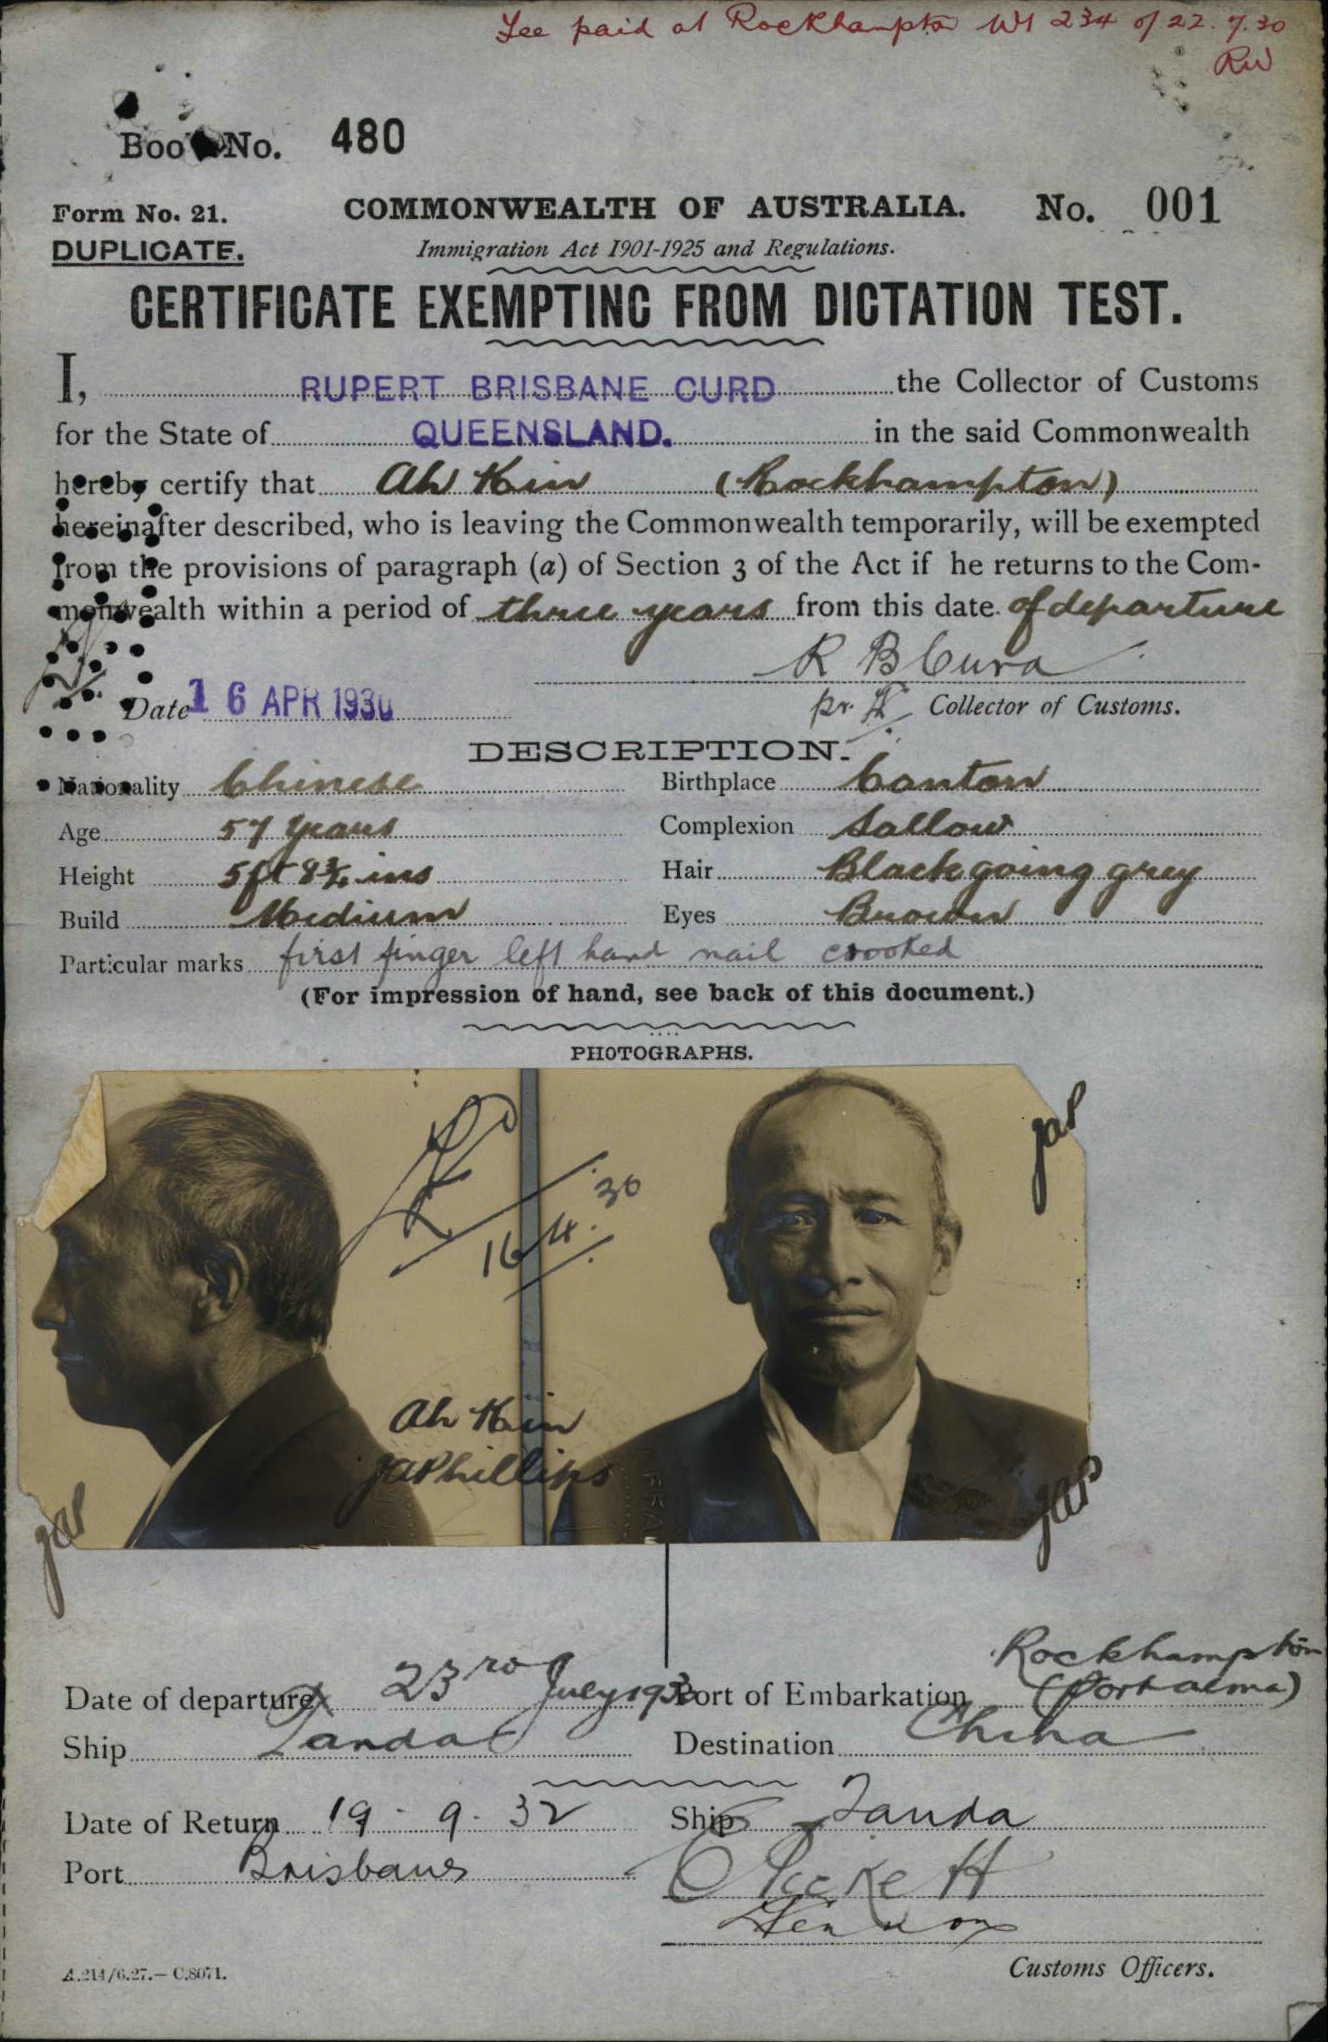 Fee paid at Rockhampton WT 234 of 22.7.30
RW
Book No. 480
Form No. 21. COMMONWEALTH OF AUSTRALIA. No. 001
DUPLICATE. Immigration Act 1901-1925 and Regulations.
CERTIFICATE EXEMPTING FROM DICTATION TEST.
I, RUPERT BRISBANE CURD the Collector of Customs
for the State of QUEENSLAND. in the said Commonwealth
hereby certify that Ah Kin (Rockhampton)
hereinafter described, who is leaving the Commonwealth temporarily, will be exempted
from the provisions of paragraph (a) of Section 3 of the Act if he returns to the Com-
monwealth within a period of three years from this date of departure
R B Curd
Date 16 APR 1930 pr. Collector of Customs.
DESCRIPTION.
Nationality Chinese Birthplace Canton
Age 57 years Complexion Sallow
Height 5ft 8¾ ins Hair Black going grey
Build Medium Eyes Brown
Particular marks first finger left hand nail crooked
(For impression of hand, see back of this document.)
PHOTOGRAPHS.
JAP
16/4.30
Ah Kin
JAPhillips
JAP
JAP
Rockhampton
Date of departure 23rd July 1930 Port of Embarkation (Port Alma)
Ship Tanda Destination China
Date of Return 19-9-32 Ship Tanda
Port Brisbane
Customs Officers.
A.214/6.27.—C.8071.